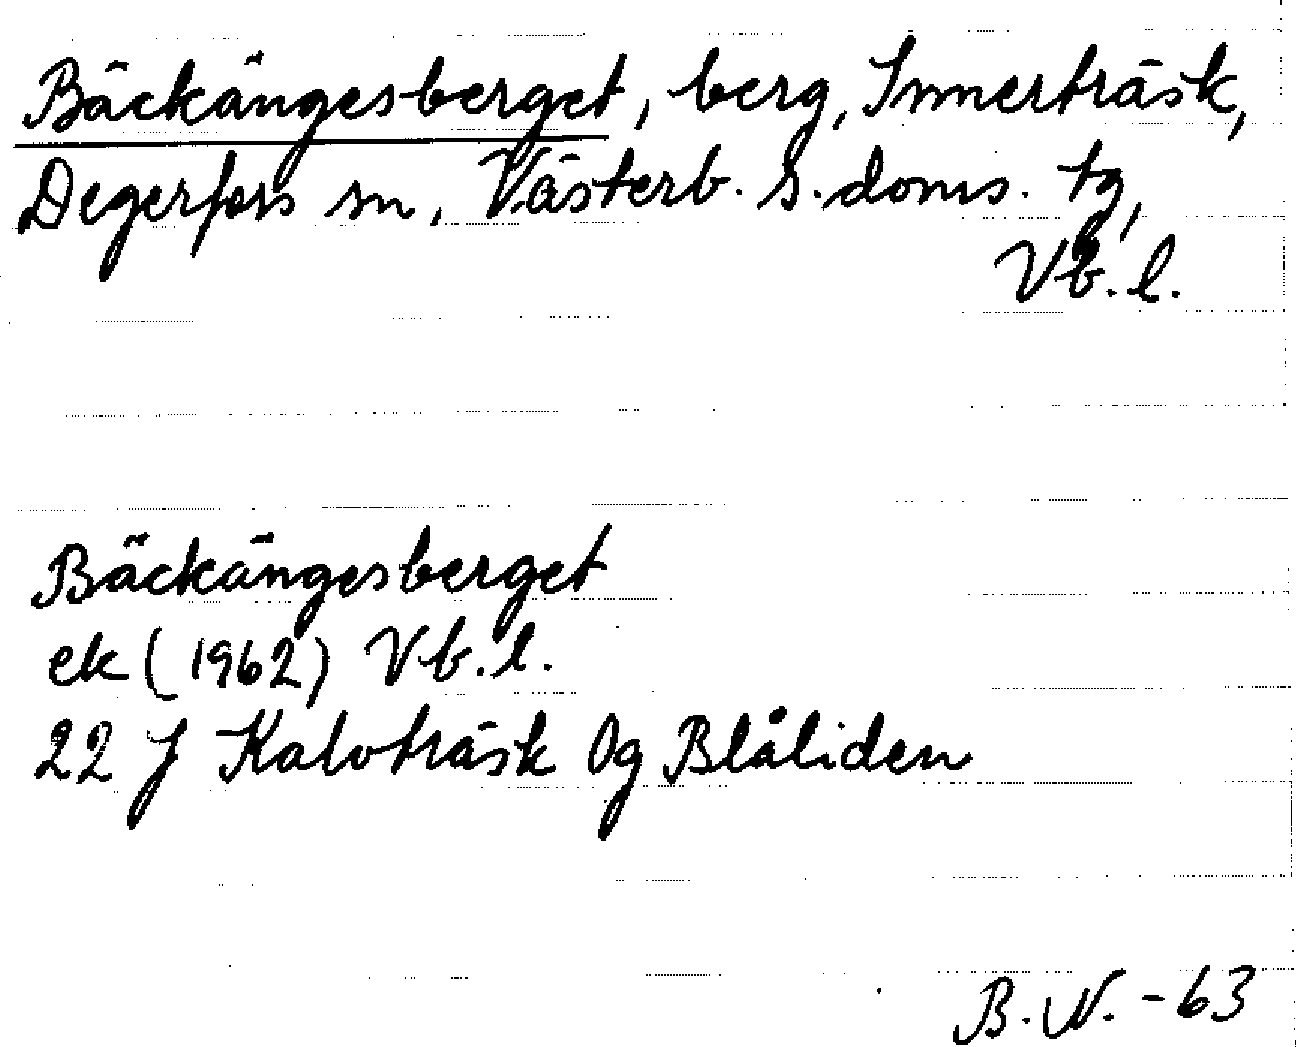 Bäckängesberget, berg, Innerträsk,
Degerfors sn, Västerb. s. doms. tg,
Vb. l.
Bäckängesberget
ek (1962) Vb. l.
22 J Kalvträsk Og Blåliden
B. W. -63